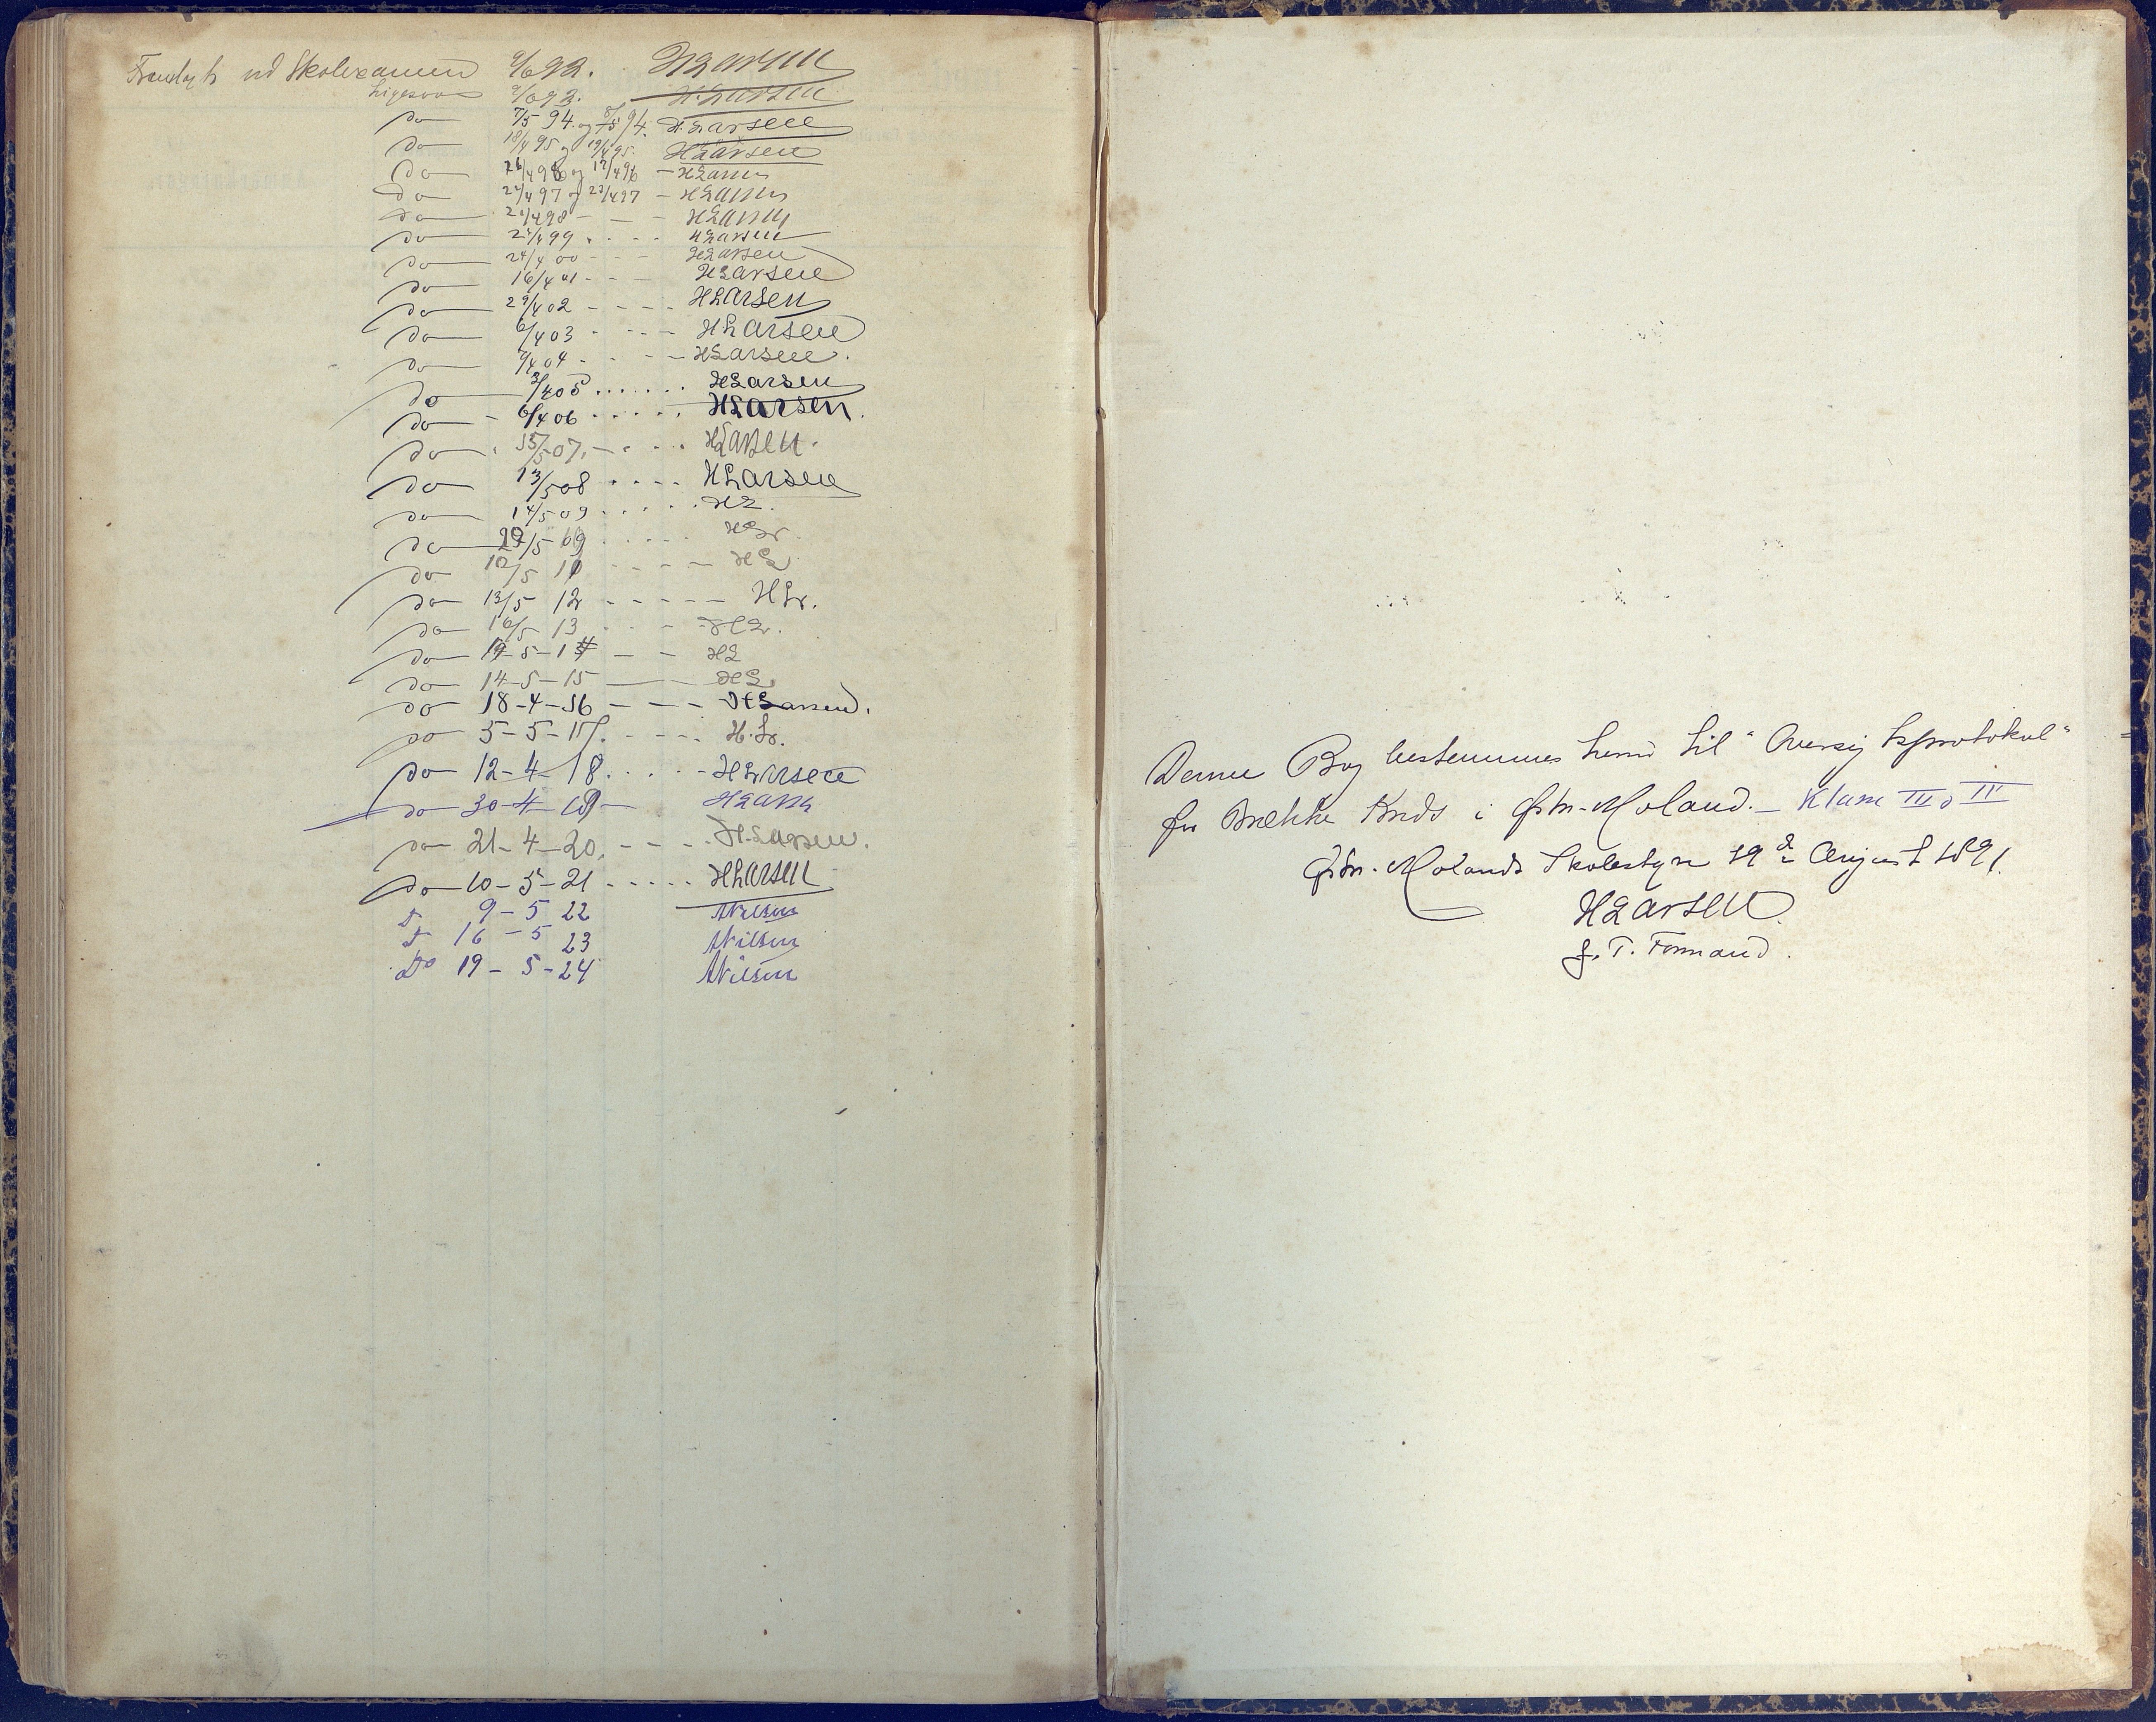 Fremlagt ved Skolexamen 9/6 92. HLarsen
Ligesaa 9/6 93. H. Larsen
do 7/5 94 og 8/5 94. H. Larsen
do 18/4 95 og 19/4 95. HLarsen
do 16/4 96 og 17/4 96 - HLarsen
do 22/4 97 og 23/4 97 - HLarsen
do 21/4 98 - - - HLarsen
do 25/4 99 . . . . HLarsen
do 24/4 00 - - - HLarsen
do 16/4 01 - - - HLarsen
do 29/4 02 - - - - HLarsen
do 6/4 03 - - - - HLarsen
do 9/4 04 - . - - HLarsen.
do 3/4 05 ...... HLarsen
do - 6/4 06 ..... HLarsen.
do . 15/5 07. - . . . HLarsen.
do 13/5 08 .... HLarsen
do 14/5 09 ..... HL.
do 29/5 09 ..... HLr.
do 10/5 10 - - - - HL
do 13/5 12 - - - - - HLr.
do 16/5 13 - - - HLr.
do 19-5-14 - - HL
do 14-5-15 — HL
do 18-4-16 - - - HLarsen.
do 5-5-17. - - - - H. Lr.
do 12-4-18. . . . - HLarsen
do 30-4-19 - HLarsen
do 21-4-20. - - - . HLarsen.
do 10-5-21 ..... HLarsen
9-5 22 Nilsen
16-5 23 Nilsen
Do 19-5-24 Nilsen
Denne Bog bestemmes herved til "Oversigtsprotokol"
for Brække Kreds i Østre-Moland. - Klasse III o IV
Østre-Molands Skolestyre 19de August 1891.
HLarsen
f. T. Formand.